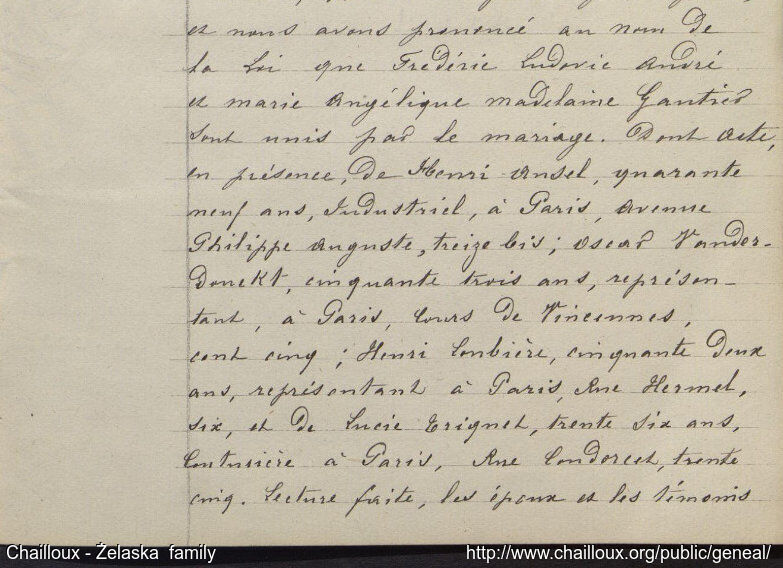 et nous avons prononcé au nom de
la Loi que Frédéric Ludovic André
et marie Angélique madelaine Gautier
sont unis par le mariage. Dont Acte,
en présence, de Henri Ansel, quarante
neuf ans, Industriel, à Paris, Avenue
Philippe Auguste, treize bis; Oscar Vander-
Donckt, cinquante trois ans, représen-
tant, à Paris, Cours de Vincennes,
cent cinq; Henri Combière, cinquante deux
ans, représentant à Paris, Rue Hermel,
six, et de Lucie Erignet, trente six ans,
Couturière à Paris, Rue Condorcet, trente
cinq. Lecture faite, les époux et les témoins
Chailloux - Żelaska family
http://www.chailloux.org/public/geneal/